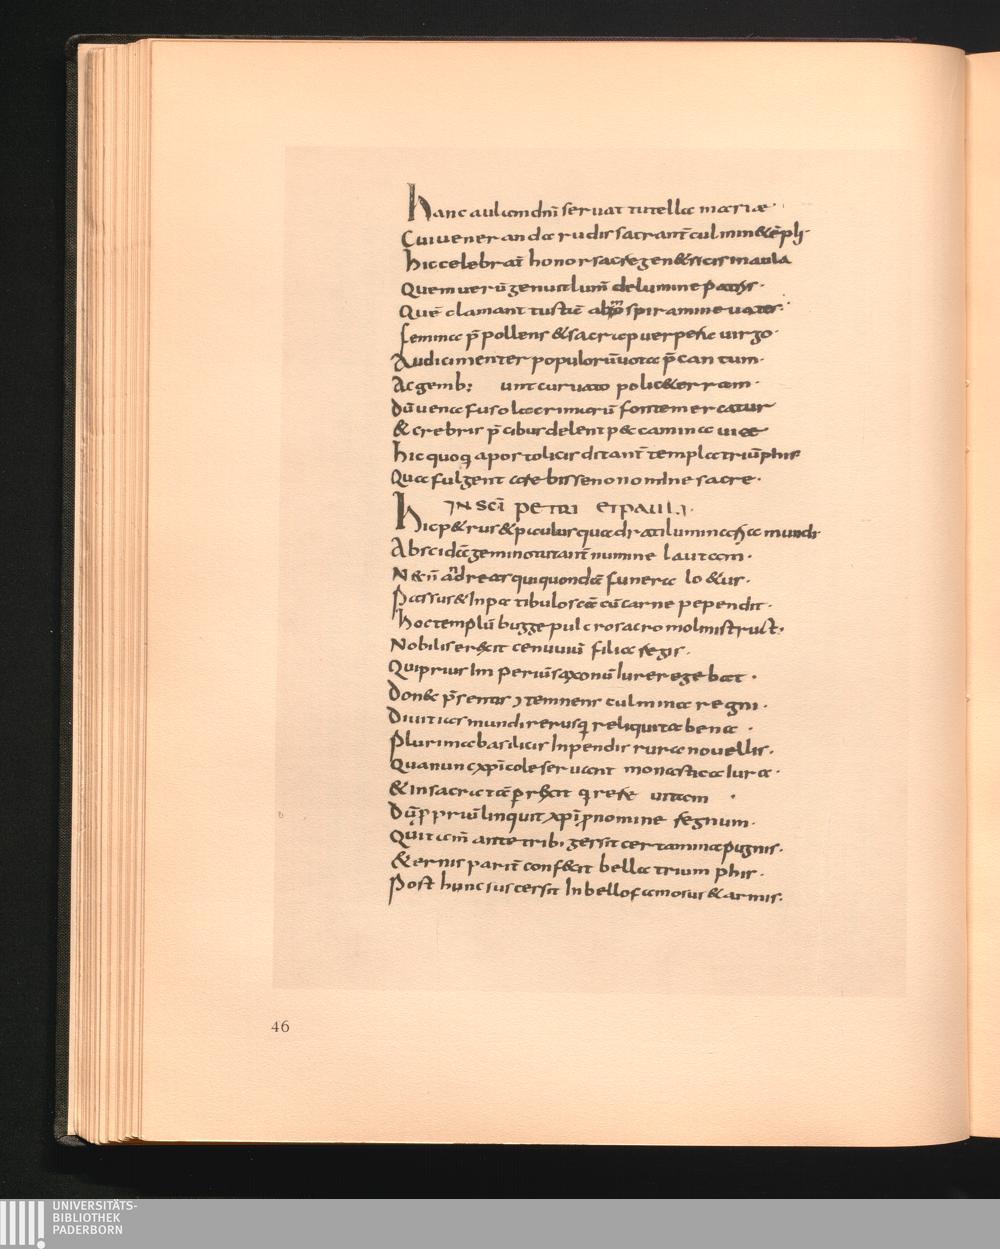 hanc aulam dn̄i seruat tutella mariae·
Cui ueneranda rudis sacrant̄ culmin& ēpli·
hic celebrat̄ honor sacre gen&ricis in aula
Quem uerū genuit lum̄ de lumine patris·
Quē clamant spiramine uates·
femina p̄ pollens & sacra puerpera uirgo·
Audi clementer populorū uota p̄cantum·
Ac gemb: unt curuato poli& erram·
Dū uenia fuso lacrimarū fonte mercatur
& crebris p̄cibus delent peccamina uitae
hic quoq apostolicis ditant̄ templa triūphis
Quae fulgent a te bisseno nomine sacre·
IN SCĪ PETRI ET PAULI·
hic p&rus & paulus quadrati lumina mundi
Abscidā gemino tutant̄ numine lautam·
N& n̄ andreas qui quondā funera lo&us·
Passus & In patibulo scā cū carne pependit·
hoc templū bugge pulcro sacro molmi struct·
Nobilis erexit centuuini filia regis·
Qui prius Imperiū saxonū Iure regebat·
Don& p̄sentis ɔtemnens culmina regni·
Diuitias mundi rerūsq reliquit abena·
Plurima basilicis Inpendis rura nouellis·
Qua nunc xp̄icole seruant monastica Iura·
& In sacratā p rexit q rere uitam·
Dū ppriū linquit xp̄i p nomine regnum·
Quit am̄ ante trib; gessit certamina pugnis·
& ernis parit̄ confecit bella triumphis·
Post hunc successit In bello famosus & armis·
46
UNIVERSITÄTS-
BIBLIOTHEK
PADERBORN